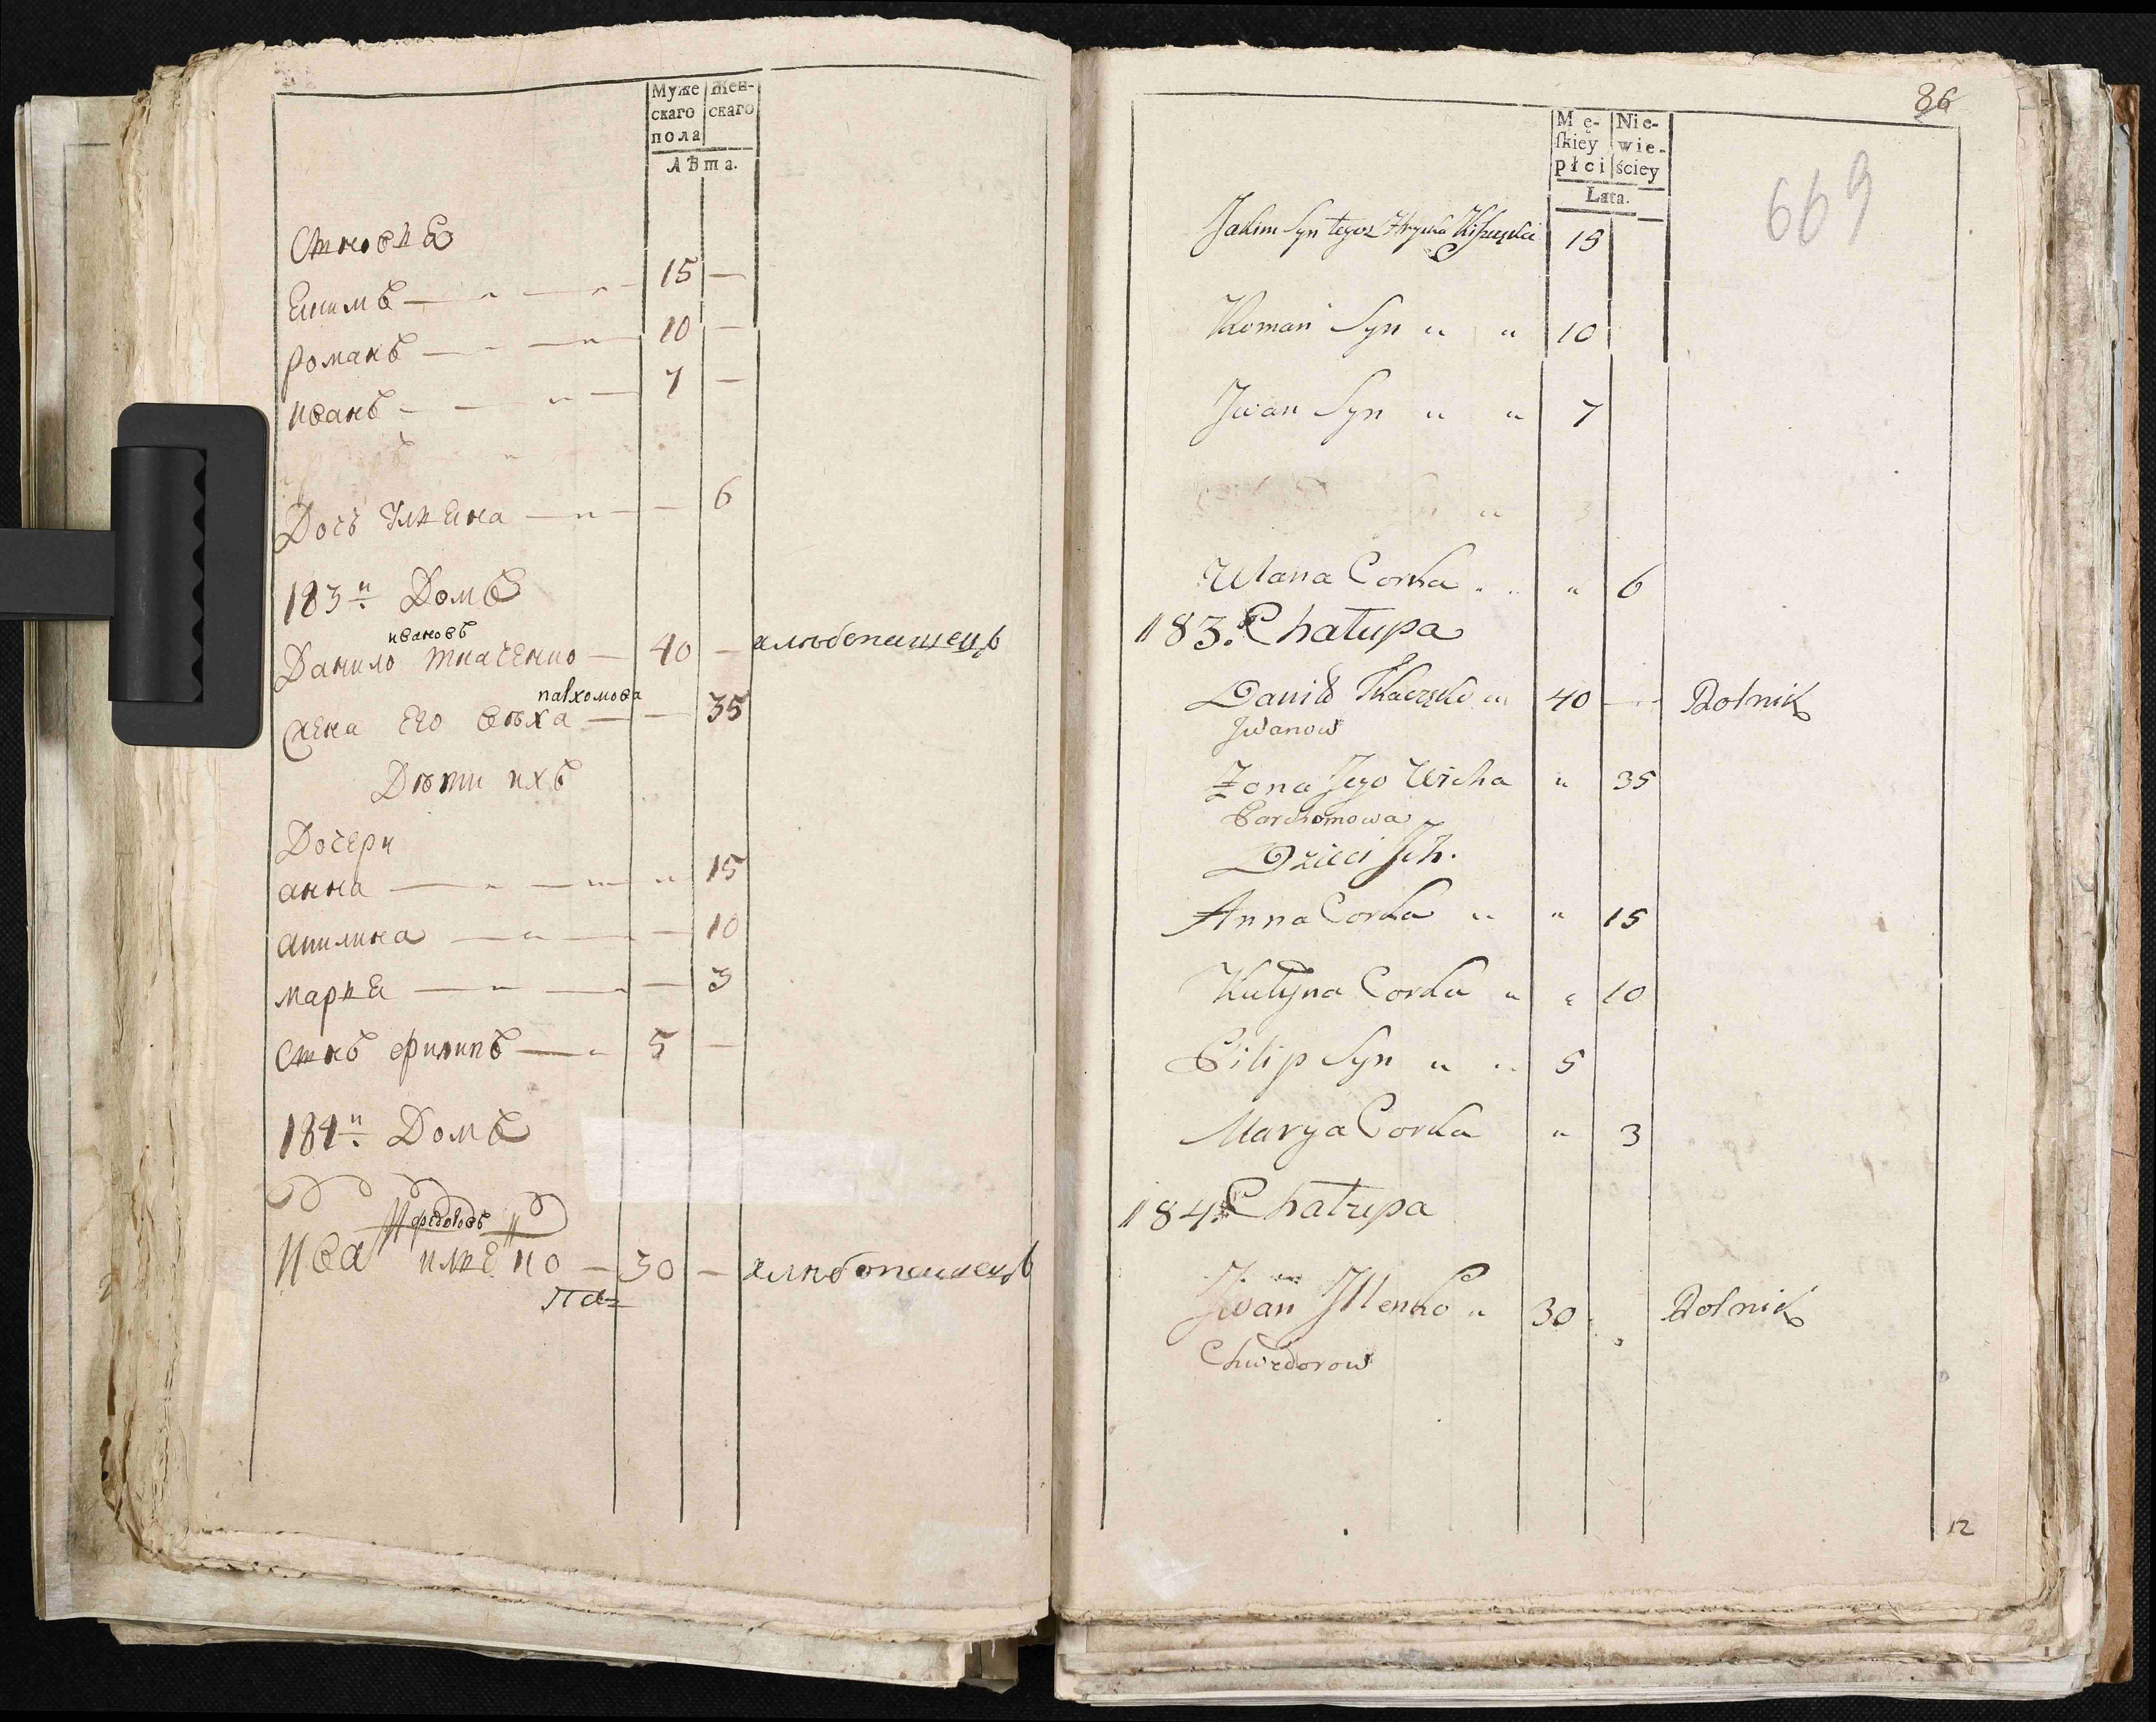 Муже
скаго
пола
Жен-
скаго
Лѣта.
Сыновья
Екимъ — 15 —
романъ — 10 —
иванъ — 7 —
Дочъ Ульяна — — 6
183й Домъ
ивановъ
Данило ткаченко — 40 — хлѣбопашецъ
пархомова
Жена его Вѣха — — 35
Дѣти ихъ
Дочери
анна — " 15
акилина — — 10
марья — — 3
Сынъ филипъ — 5 —
184й Домъ
федоровъ
Иван илченко — 30 — хлѣбопашецъ
86
669
Mę-
ſkiey
płci
Nie-
wie-
ściey
Lata.
Jakim Syn tegoż Hryćka 15
Roman Syn " " 10
Jwan Syn " " 7
" 3
Ulana Corka " " " 6
183. Chałupa
Daniło Tkaczeko " 40 — Rolnik
Jwanow
Zona Jego Wicha " 35
Parchomowa
Dzieci Jch.
Anna Corka " " 15
Kulyna Corka " " 10
Filip Syn " " 5
Marya Corka " 3
184. Chałupa
Jwan Jllenko " 30 " Rolnik
Chwedorow
12